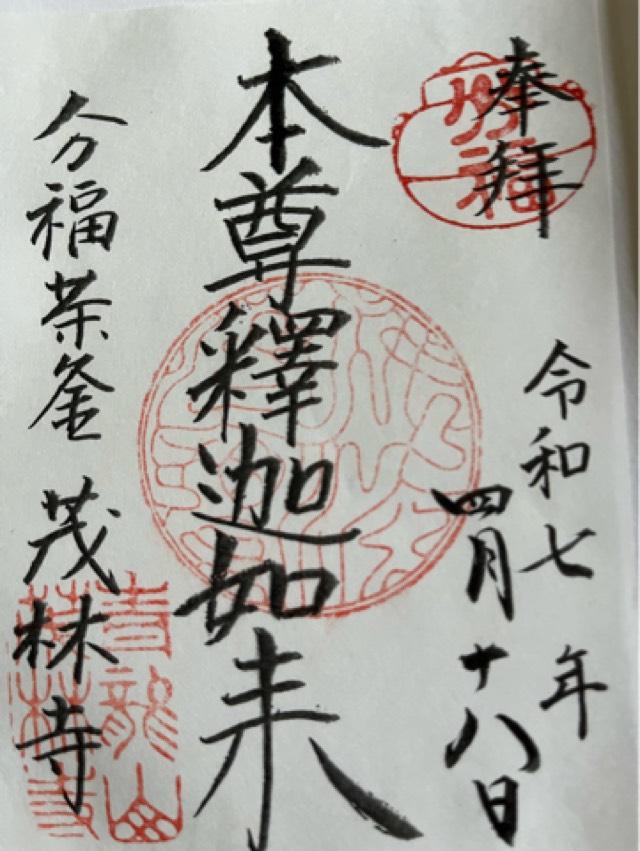 奉拝
令和七年
四月十八日
本尊釋迦如来
分福茶釜 茂林寺
分福
青龍山
茂林寺